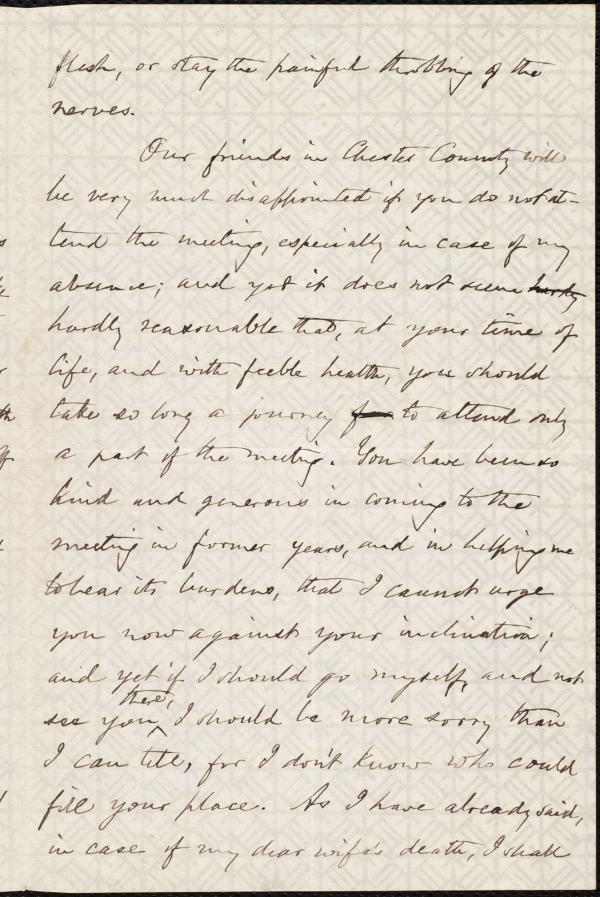 flesh, or stay the painful throbbing of the
nerves.
Our friends in Chester County will
be very much disappointed if you do not at-
tend the meeting, especially in case of my
absence; and yet it does not seem hardly
hardly reasonable that, at your time of
life, and with feeble health, you should
take so long a journey for to attend only
a part of the meeting. You have been so
kind and generous in coming to the
meeting in former years, and in helping me
to bear its burdens, that I cannot urge
you now against your inclination;
and yet if I should go myself, and not
see you there, I should be more sorry than
I can tell, for I don't know who could
fill your place. As I have already said,
in case of my dear wife's death, I shall